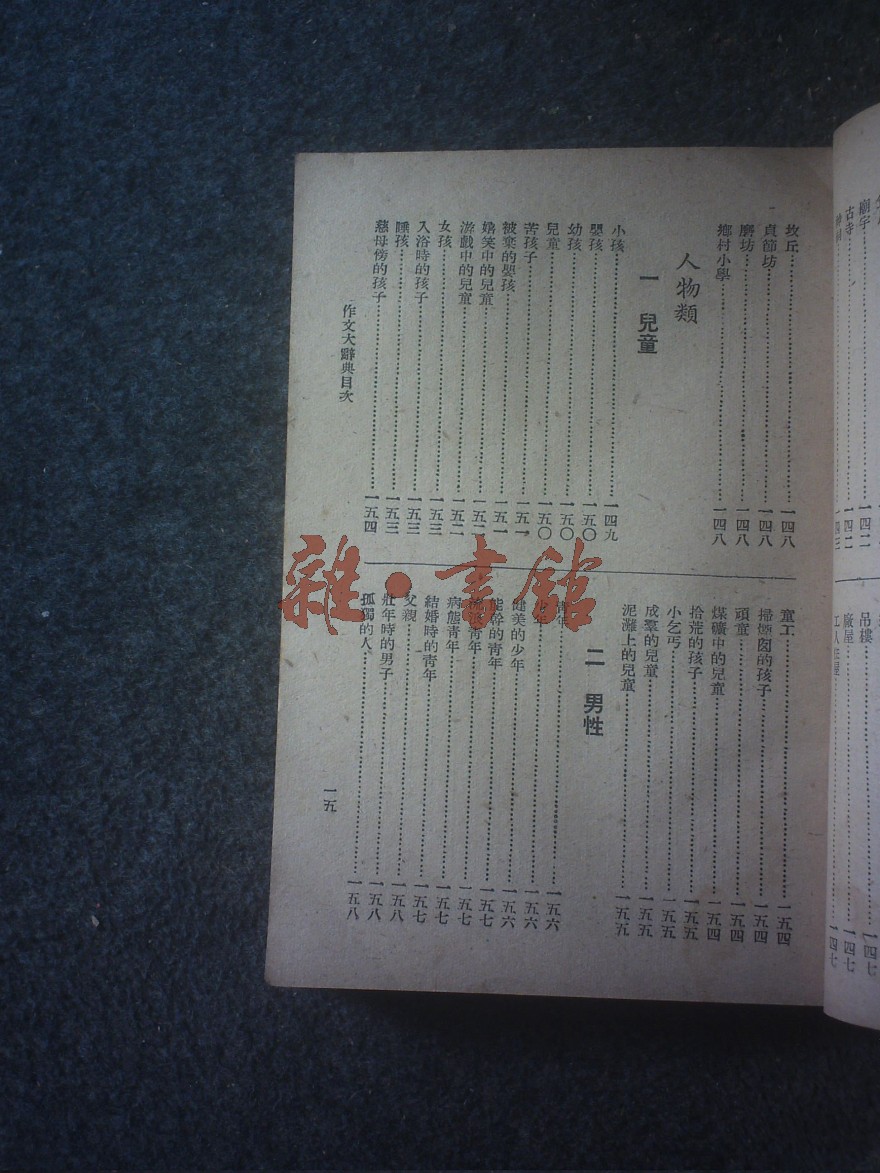 坟丘 一四八
貞節坊 一四八
磨坊 一四八
鄉村小學 一四八
人物類
一 兒童
小孩 一四九
嬰孩 一五〇
幼孩 一五〇
兒童 一五〇
苦孩子 一五一
被棄的嬰孩 一五一
嬉笑中的兒童 一五二
游戲中的兒童 一五二
女孩 一五三
入浴時的孩子 一五三
睡孩 一五三
慈母傍的孩子 一五四
童工 一五四
掃煙囪的孩子 一五四
頑童 一五四
煤礦中的兒童 一五四
拾荒的孩子 一五五
小乞丐 一五五
成羣的兒童 一五五
泥灘上的兒童 一五五
二 男性
青年 一五六
少年 一五六
健美的少年 一五六
能幹的青年 一五七
青年 一五七
病態青年 一五七
結婚時的青年 一五七
父親 一五八
壯年時的男子 一五八
孤獨的人 一五八
作文大辭典目次
一五
廟宇 一四二
古寺 一四二
一四三
吊樓 一四七
廠屋 一四七
工人 一四七
雜·書館